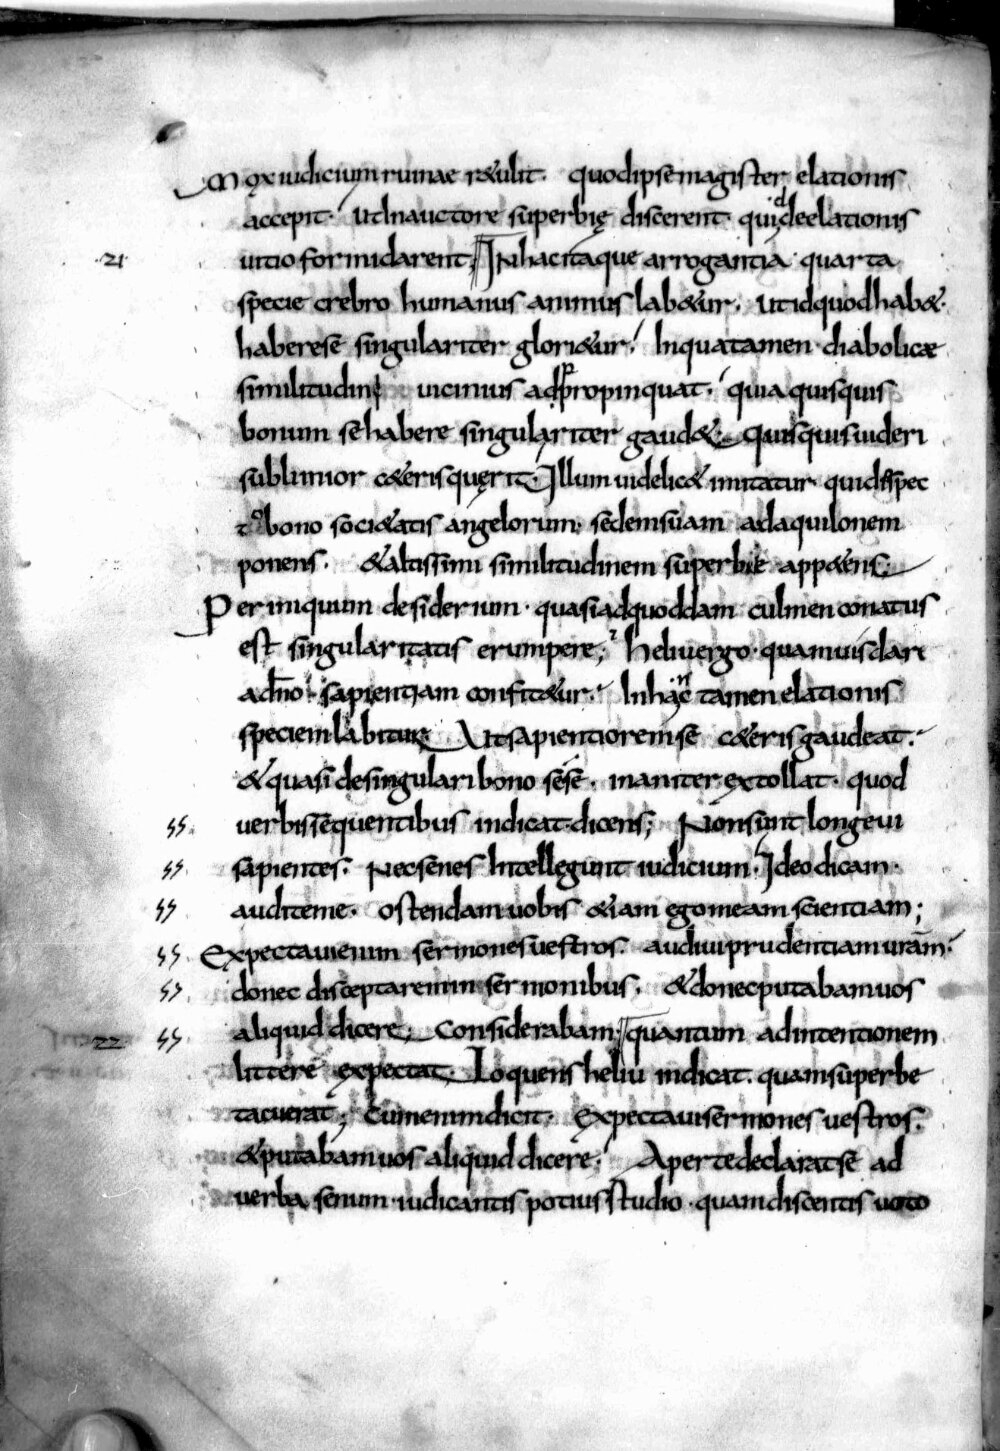 Mox iudicium ruinae r&ulit. quod ipse magister elationis
accepit. Ut In auctore superbię discerent. quid de elationis
21 uitio formidarent; IN hac itaque arrogantia quarta
specie crebro humanus animus lab&ur. Ut id quod hab&.
habere se singulariter glori&ur. In qua tamen diabolicae
similitudini uicinius adpropinquat. quia quisquis
bonum se habere singulariter gaud&. Quisquis uideri
sublimior c&eris quęrit. Illum uidelic& imitatur qui despec
to bono soci&atis angelorum. sedem suam ad aquilonem
ponens. & altissimi similitudinem superbię app&ens.
Per iniquum desiderium. quasi ad quoddam culmen conatus
est singularitatis erumpere; heliu ergo. quamuis dari
ad dno sapientiam confit&ur. In hanc tamen elationis
speciem labitur. Ut sapientiorem se c&eris gaudeat.
& quasi de singulari bono sese. inaniter extollat. quod
ss. uerbis sequentibus indicat dicens; Non sunt longeui
ss. sapientes. Nec senes Intellegunt iudicium. Ideo dicam.
ss audite me. ostendam uobis &iam ego meam scientiam;
ss. Expectaui enim sermones uestros. audiui prudentiam uram.
ss. donec disceptaremini sermonibus. & donec putabam uos
22 ss. aliquid dicere. Considerabam; quantum ad intentionem
littere expectat. Loquens heliu indicat. quam superbe
tacuerat; Cum enim dicit. Expectaui sermones uestros.
& putabam uos aliquid dicere. Aperte declarat se ad
uerba senum iudicantis potius studio. quam discentis uoto